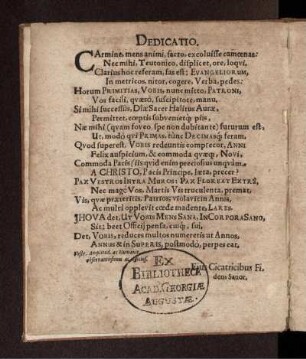 DEDICATIO.
CARmine, mens animi, sacro, excoluisse camœnas:
Nec mihi, Teutonico, displicet, ore, loqui,
Clarius hoc referam, fas est: EVANGELIORUM,
In metricos, nitor, cogere, Verba, pedes:
Horum PRIMITIAS, VOBIS, nunc mitto, PATRONI,
Vos facili, quæsò, suscipitote, manu.
Si mihi successûs, Diæ Sacer Halitus Auræ,
Permittet, cœptis subvenietq́; piis.
Næ mihi (quam foveo spe non dubitante) futurum est,
Ut, modò quî PRIMA, sint DECIMAq́; feram.
Quod superest, VOBIS redeuntis comprecor, ANNI
Felix auspicium, & commoda quæq́;, Novi,
Commoda Pacis sit; quid enim preciosius
A CHRISTO, Pacis Principe, læta, precer
PAX VESTROS INTRA MUROS: PAX FLOREAT EXTRÀ,
Nec mage Vos, Martis Vis truculenta, premat,
Vis, quæ præteritis, PATRIAM, violavit in Annis,
Ac multi opplevit cœde madente, LARES.
JHOVA det, Ut VOBIS MENS SANA, IN CORPORA SANO,
Sit: beet Officij pensa, cuiq́;, sui,
Det, VOBIS, reduces multos numeretis ut Annos,
ANNIS & in SUPERIS, postmodò, perpes eat.
EX
BIBLIOTHECA
ACAD. GEORGIÆ
AUGUSTÆ.
Cicatricibus Fi-
dens Sator.